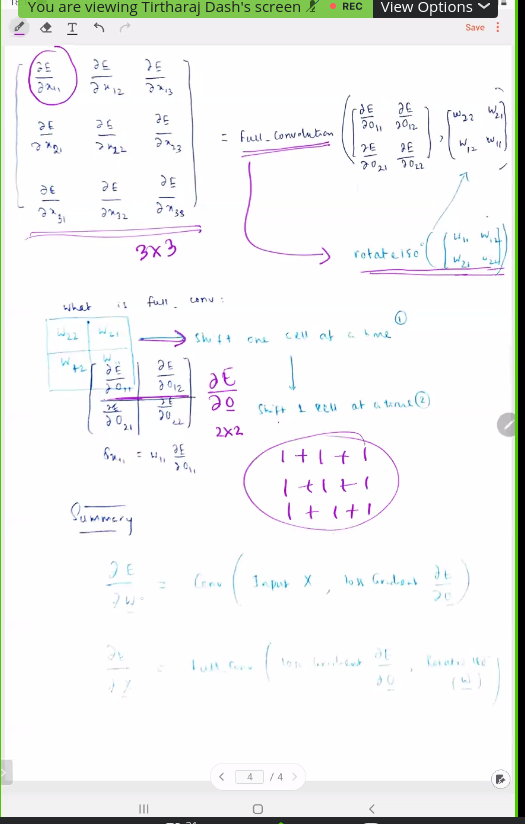 You are viewing Tirtharaj Dash's screen
REC
View Options
T
Save
∂E/∂x11 ∂E/∂x12 ∂E/∂x13
∂E/∂x21 ∂E/∂x22 ∂E/∂x23
∂E/∂x31 ∂E/∂x32 ∂E/∂x33
3x3
= Full_Convolution ( [ ∂E/∂O11 ∂E/∂O12
∂E/∂O21 ∂E/∂O22 ] , [ W22 W21
W12 W11 ] )
rotate180 ( [ W11 W12
W21 W22 ] )
What is full_conv:
W22 W21
W12 W
shift one cell at a time ①
∂E/∂O11 ∂E/∂O12
∂E/∂O21 ∂E/∂O22
∂E/∂O
2x2
shift 1 cell at a time ②
δx11 = W11 ∂E/∂O11
1 + 1 + 1
1 + 1 + 1
1 + 1 + 1
Summary
∂E/∂W = Conv ( Input X , loss Gradient ∂E/∂O )
= Full Conv ( loss Gradient ∂E/∂O , (W) )
4 / 4